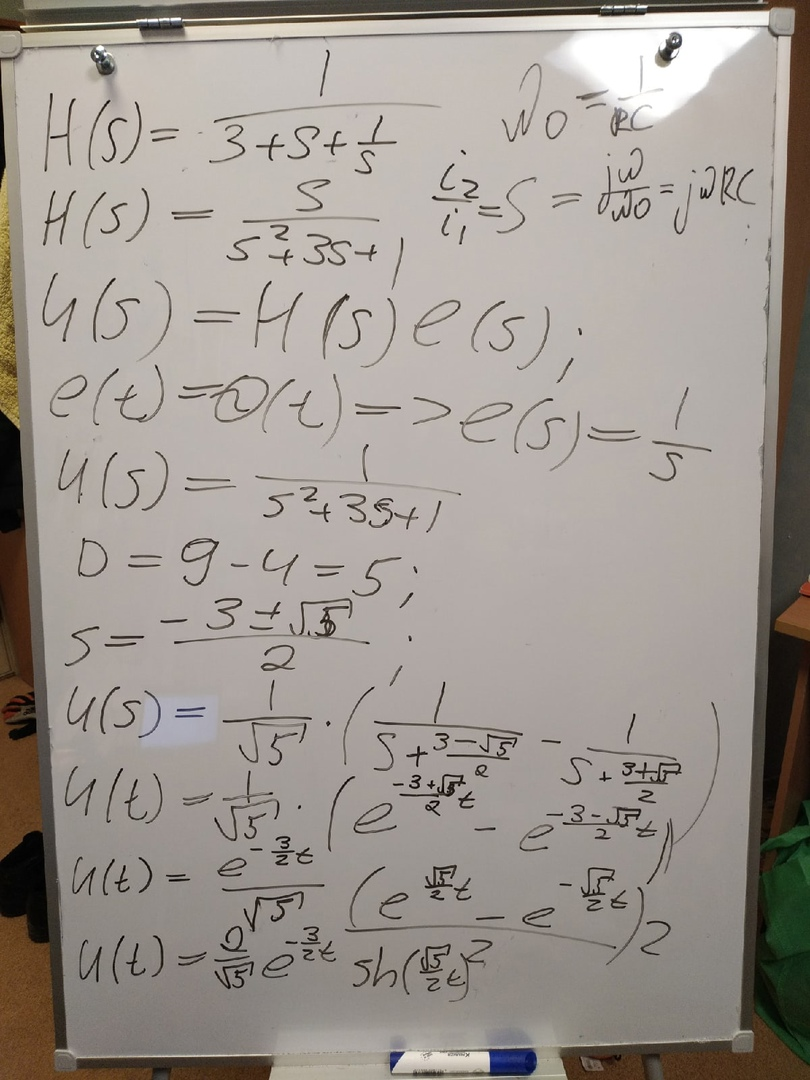 H(s) = 1/(3+s+1/s)
ω0 = 1/RC
H(s) = s/(s²+3s+1)
i2/i1 = S = jω/ω0 = jωRC
U(s) = H(s)e(s);
e(t) = Θ(t) => e(s) = 1/s
U(s) = 1/(s²+3s+1)
D = 9-4 = 5;
s = (-3±√5)/2;
U(s) = 1/√5 · (1/(s+(3-√5)/2) - 1/(s+(3+√5)/2))
U(t) = 1/√5 · (e^((-3+√5)/2 t) - e^((-3-√5)/2 t))
U(t) = e^(-3/2 t)/√5 (e^(√5/2 t) - e^(-√5/2 t))/2 2
U(t) = 2/√5 e^(-3/2 t) sh(√5/2 t)